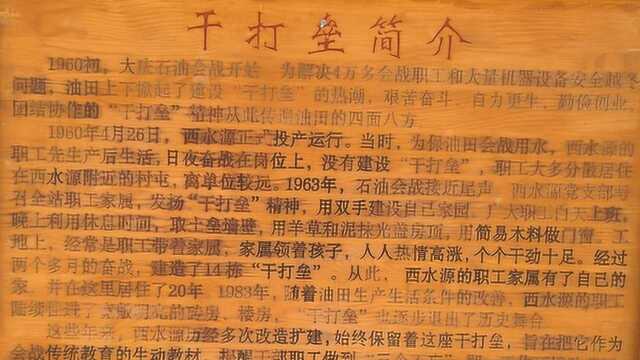 干打垒简介
1960初，大庆石油会战开始 为解决4万多会战职工和大量机器设备安全越冬
问题，油田上下掀起了建设“干打垒”的热潮，艰苦奋斗、自力更生、勤俭创业
团结协作的“干打垒”精神从此传遍油田的四面八方
1960年4月26日，西水源正 投产运行。当时，为保油田会战用水，西水源的
职工先生产后生活，日夜奋战在岗位上，没有建设“干打垒”，职工大多分散居住
在西水源附近的村屯，离单位较远。1963年，石油会战接近尾声 西水源党支部号
召全站职工家属，发扬“干打垒”精神，用双手建设自己家园 广大职工白天上班，
晚上利用休息时间，取土垒墙壁，用羊草和泥抹光盖房顶，用简易木料做门窗 工
地上，经常是职工带着家属，家属领着孩子，人人热情高涨，个个干劲十足。经过
两个多月的奋战，建造了14栋“干打垒”。从此，西水源的职工家属有了自己的
家 并在这里居住了20年 1983年，随着油田生产生活条件的改善，西水源的职工
陆续住进了宽敞明亮的砖房、楼房，“干打垒”也逐步退出了历史舞台
这些年来，西水源历经多次改造扩建，始终保留着这座干打垒，旨在把它作为
会战传统教育的生动教材，提醒干部职工做到